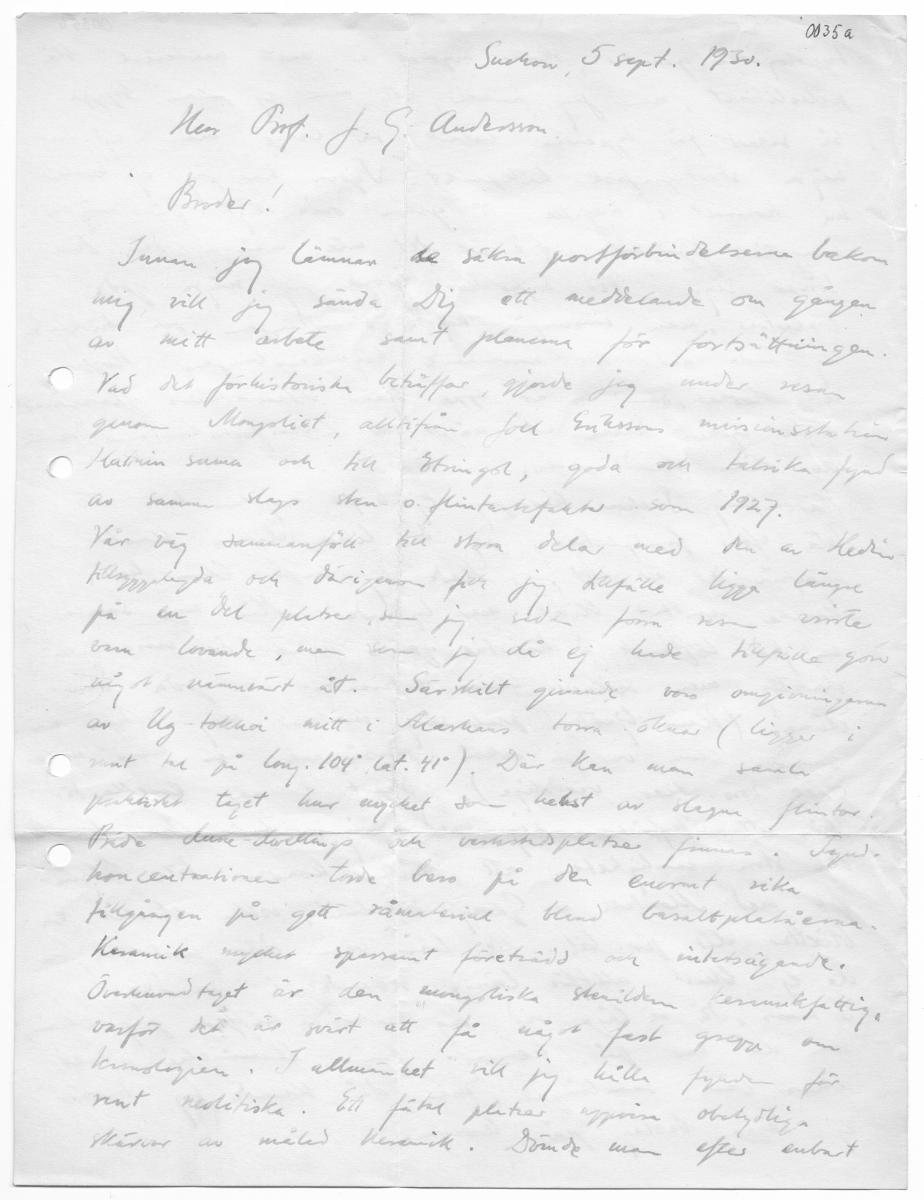 0035a
Suchow, 5 sept. 1930.
Herr Prof. J. G. Andersson.
Broder!
Innan jag lämnar de säkra postförbindelserna bakom
mig vill jag sända Dig ett meddelande om gången
av mitt arbete samt planerna för fortsättningen.
Vad det förhistoriska beträffar, gjorde jag under resan
genom Mongoliet, alltifrån Joel Erikssons missionsstation
Hattin suma och till Etsingol, goda och talrika fynd
av samma slags sten o. flintartefakter som 1927.
Vår väg sammanföll till stora delar med den av Hedin
tillryggalagda och därigenom fick jag tillfälle ligga längre
på en del platser, som jag sedan förra resan visste
vara lovande, men som jag då ej hade tillfälle göra
något nämnvärt åt. Särskilt givande voro omgivningarna
av Ug-tokhoi mitt i Alashans torra öknar (ligger i
runt tal på long. 104° lat. 41°). Där kan man samla
praktiskt taget hur mycket som helst av slagna flintor.
Både dune-dwellings och verkstadsplatser finnas. Fynd-
koncentrationen torde bero på den enormt rika
tillgången på gott råmaterial bland basaltplatåerna.
Keramik mycket sparsamt företrädd och intetsägande.
Överhuvudtaget är den mongoliska stenåldern keramikfattig,
varför det är svårt att få något fast grepp om
kronologien. I allmänhet vill jag hålla fynden för
rent neolitiska. Ett fåtal platser uppvisa obetydliga
skärvor av målad keramik. Dömde man efter enbart